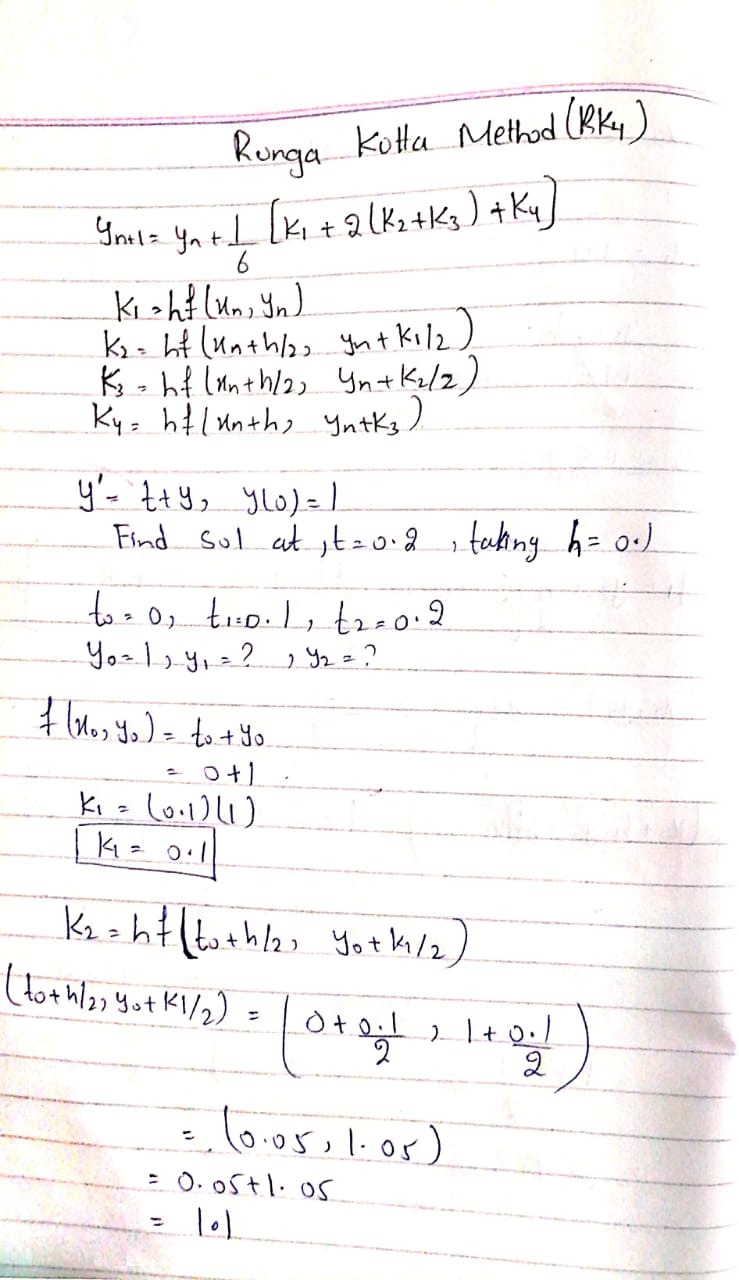 Runga Kotta Method (RK4)
yn+1 = yn + 1/6 [K1 + 2(K2+K3) + K4]
K1 = hf(xn, yn)
K2 = hf(xn+h/2, yn+K1/2)
K3 = hf(xn+h/2, yn+K2/2)
K4 = hf(xn+h, yn+K3)
y' = t+y, y(0)=1
Find sol at, t=0.2, taking h=0.1
t0 = 0, t1=0.1, t2=0.2
y0=1, y1=?, y2=?
f(x0, y0) = t0+y0
= 0+1
K1 = (0.1)(1)
K1 = 0.1
K2 = hf(t0+h/2, y0+k1/2)
(t0+h/2, y0+K1/2) = (0+0.1/2, 1+0.1/2)
= (0.05, 1.05)
= 0.05+1.05
= 1.1